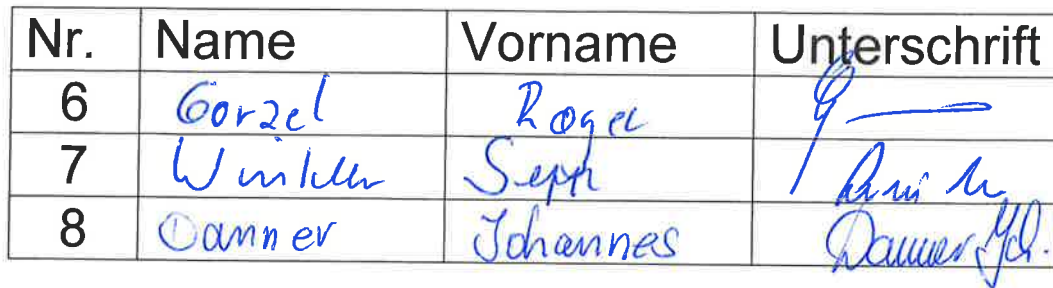 Nr. Name Vorname Unterschrift
6 Gorzel Roger
7 Winkler Sepp
8 Danner Johannes Danner Joh.